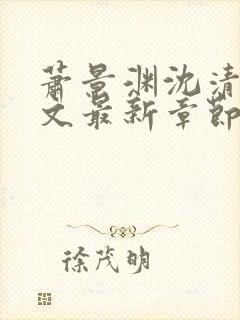 萧景渊沈清
文最新章节
徐茂明